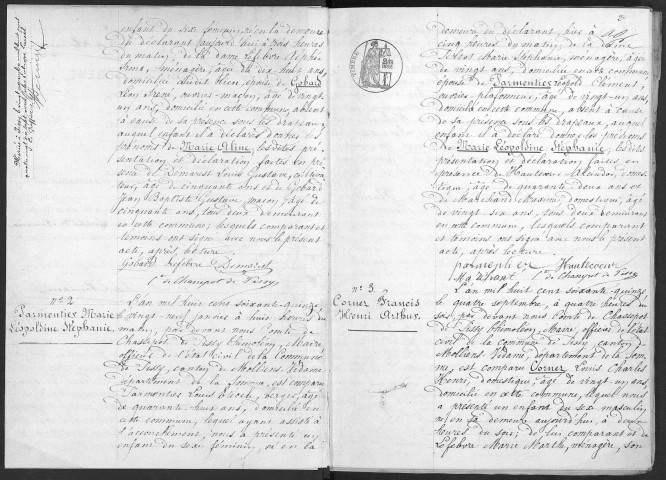 enfant du sexe féminin, né en la demeure
du déclarant aujourd'hui à trois heures
du matin, de la dame Lefebvre
ménagère, âgée de dix huit ans,
domiciliée épouse de Gobard
ouvrier maçon, âgé de vingt
un ans, domicilié en cette commune, absent
à cause de sa présence sous les drapeaux,
auquel enfant il a déclaré donner les
prénoms de Marie Aline; les dites pré-
sentation et déclaration faites en pré-
sence de Demarest Louis Gustave, cultiva-
teur, âgé de cinquante ans et de Gobard
Jean Baptiste Gustave, maçon, âgé de
cinquante ans, tous deux demeurant
en cette commune; lesquels comparant et
témoins ont signé avec nous le présent
acte, après lecture.
Gobard Lefebvre Demarest
Cte de Chassepot de Pissy
N° 2
Parmentier Marie
Léopoldine Stéphanie.
L'an mil huit cent soixante-quinze
le vingt-neuf janvier à huit heures du
matin, par devant nous Comte de
Chassepot de Pissy Thimoléon, Maire
officier de l'état civil de la Commune
de Pissy, canton de Molliens-Vidame
département de la Somme, est comparu
Parmentier Louis berger, âgé
de quarante-deux ans, domicilié en
cette commune, lequel ayant assisté à
l'accouchement, nous a présenté un
enfant du sexe féminin, né en la
demeure du déclarant, hier à
cinq heures du matin, de la dame
Marie Stéphanie, ménagère, âgée
de vingt ans, domiciliée en cette commune
épouse de Parmentier Clément,
ouvrier plafonneur, âgé de vingt un ans,
domicilié en cette commune, absent à cause
de sa présence sous les drapeaux, auquel
enfant il a déclaré donner les prénoms
de Marie Léopoldine Stéphanie; les dites
présentation et déclaration faites en
présence de Hautecoeur domes-
tique, âgé de quarante deux ans et
de Marchand domestique, âgé
de vingt six ans, tous deux demeurant
en cette commune, lesquels comparant
et témoins ont signé avec nous le présent
acte, après lecture.
Hautecoeur
Cte de Chassepot de Pissy
N° 3.
Corner Francis
Henri Arthur.
L'an mil huit cent soixante-quinze
le quatre septembre, à quatre heures du
soir, par devant nous Comte de Chassepot
de Pissy Thimoléon, Maire, officier de l'état
civil de la commune de Pissy, canton de
Molliens-Vidame, département de la Som-
me, est comparu Corner Louis Charles
Henri, domestique, âgé de vingt-un ans,
domicilié en cette commune, lequel nous
a présenté un enfant du sexe masculin,
né en sa demeure aujourd'hui, à deux
heures du soir, de lui comparant et de
Lefebvre Marie Marthe, ménagère, son